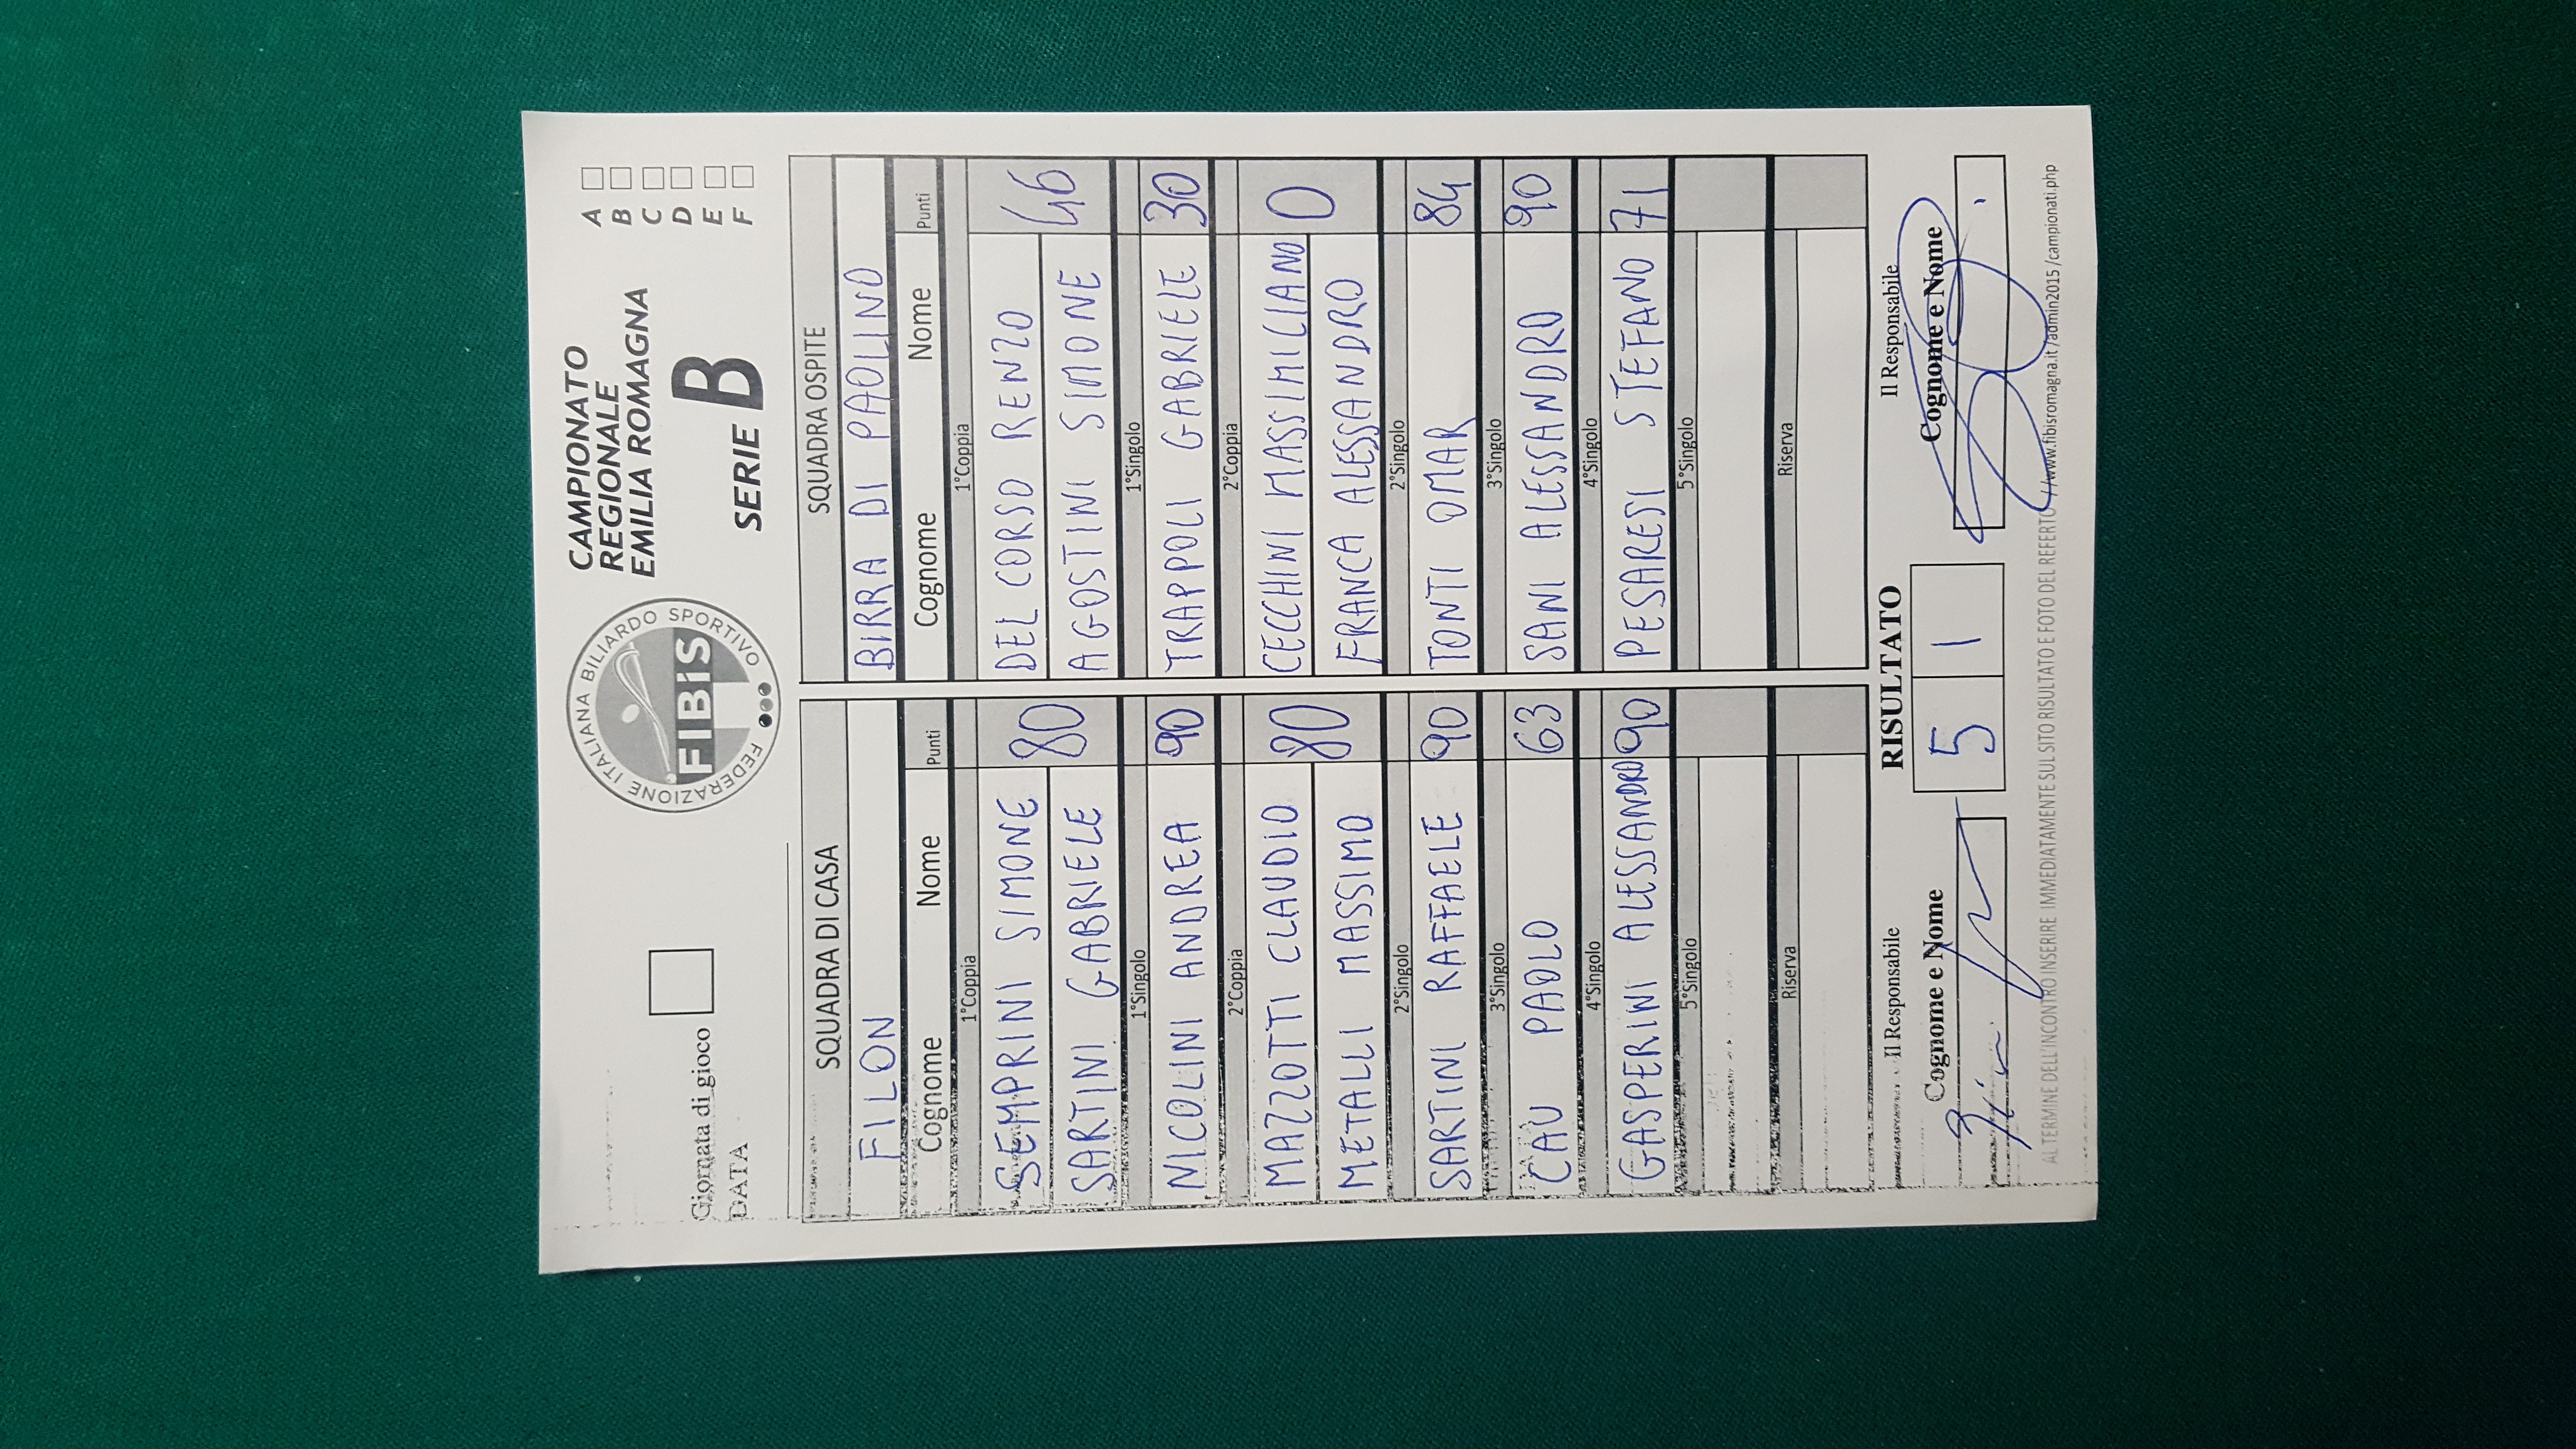 CAMPIONATO
REGIONALE
EMILIA ROMAGNA
SERIE B
A
B
C
D
E
F
FEDERAZIONE ITALIANA BILIARDO SPORTIVO
FIBiS
Giornata di gioco
DATA
SQUADRA DI CASA SQUADRA OSPITE
FILON BIRRA DI PAOLINO
Cognome Nome Punti Cognome Nome Punti
1°Coppia 1°Coppia
SEMPRINI SIMONE 80 DEL CORSO RENZO 46
SARTINI GABRIELE AGOSTINI SIMONE
1°Singolo 1°Singolo
NICOLINI ANDREA 90 TRAPPOLI GABRIELE 30
2°Coppia 2°Coppia
MAZZOTTI CLAUDIO 80 CECCHINI MASSIMILIANO 0
METALLI MASSIMO FRANCA ALESSANDRO
2°Singolo 2°Singolo
SARTINI RAFFAELE 90 TONTI OMAR 84
3°Singolo 3°Singolo
CAU PAOLO 63 SANI ALESSANDRO 90
4°Singolo 4°Singolo
GASPERINI ALESSANDRO 90 PESARESI STEFANO 71
5°Singolo 5°Singolo
Riserva Riserva
Il Responsabile RISULTATO Il Responsabile
Cognome e Nome 5 1 Cognome e Nome
AL TERMINE DELL'INCONTRO INSERIRE IMMEDIATAMENTE SUL SITO RISULTATO E FOTO DEL REFERTO //www.fibisromagna.it/admin2015/campionati.php